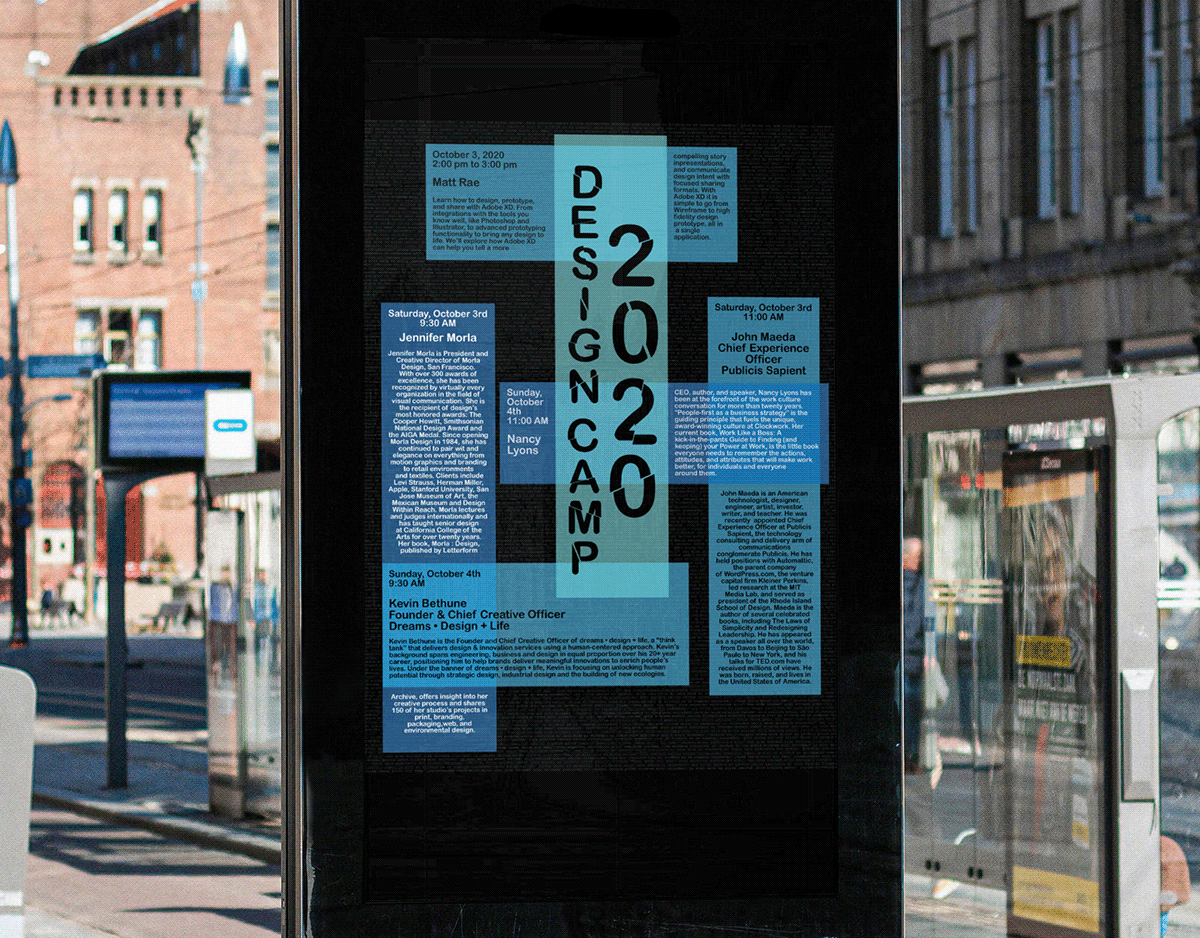 October 3, 2020
2:00 pm to 3:00 pm
Matt Rae
Learn how to design, prototype,
and share with Adobe XD. From
integrations with the tools you
know well, like Photoshop and
Illustrator, to advanced prototyping
functionality to bring any design to
life. We'll explore how Adobe XD
can help you tell a more
compelling story
inpresentations,
and communicate
design intent with
focused sharing
formats. With
Adobe XD it is
simple to go from
Wireframe to high
fidelity design
prototype, all in
a single
application.
DESIGN CAMP
2020
Saturday, October 3rd
9:30 AM
Jennifer Morla
Jennifer Morla is President and
Creative Director of Morla
Design, San Francisco.
With over 300 awards of
excellence, she has been
recognized by virtually every
organization in the field of
visual communication. She is
the recipient of design's
most honored awards: The
Cooper Hewitt, Smithsonian
National Design Award and
the AIGA Medal. Since opening
Morla Design in 1984, she has
continued to pair wit and
elegance on everything from
motion graphics and branding
to retail environments
and textiles. Clients include
Levi Strauss, Herman Miller,
Apple, Stanford University, San
Jose Museum of Art, the
Mexican Museum and Design
Within Reach. Morla lectures
and judges internationally and
has taught senior design
at California College of the
Arts for over twenty years.
Her book, Morla : Design,
published by Letterform
Archive, offers insight into her
creative process and shares
150 of her studio's projects in
print, branding,
packaging,web, and
environmental design.
Sunday,
October
4th
11:00 AM
Nancy
Lyons
CEO, author, and speaker, Nancy Lyons has
been at the forefront of the work culture
conversation for more than twenty years.
"People-first as a business strategy" is the
guiding principle that fuels the unique,
award-winning culture at Clockwork. Her
current book, Work Like a Boss: A
kick-in-the-pants Guide to Finding (and
keeping) your Power at Work, is the little book
everyone needs to remember the actions,
attitudes, and attributes that will make work
better, for individuals and everyone
around them.
Saturday, October 3rd
11:00 AM
John Maeda
Chief Experience
Officer
Publicis Sapient
John Maeda is an American
technologist, designer,
engineer, artist, investor,
writer, and teacher. He was
recently appointed Chief
Experience Officer at Publicis
Sapient, the technology
consulting and delivery arm of
communications
conglomerate Publicis. He has
held positions with Automattic,
the parent company
of WordPress.com, the venture
capital firm Kleiner Perkins,
led research at the MIT
Media Lab, and served as
president of the Rhode Island
School of Design. Maeda is the
author of several celebrated
books, including The Laws of
Simplicity and Redesigning
Leadership. He has appeared
as a speaker all over the world,
from Davos to Beijing to São
Paulo to New York, and his
talks for TED.com have
received millions of views. He
was born, raised, and lives in
the United States of America.
Sunday, October 4th
9:30 AM
Kevin Bethune
Founder & Chief Creative Officer
Dreams • Design + Life
Kevin Bethune is the Founder and Chief Creative Officer of dreams • design + life, a "think
tank" that delivers design & innovation services using a human-centered approach. Kevin's
background spans engineering, business and design in equal proportion over his 20+ year
career, positioning him to help brands deliver meaningful innovations to enrich people's
lives. Under the banner of dreams • design + life, Kevin is focusing on unlocking human
potential through strategic design, industrial design and the building of new ecologies.